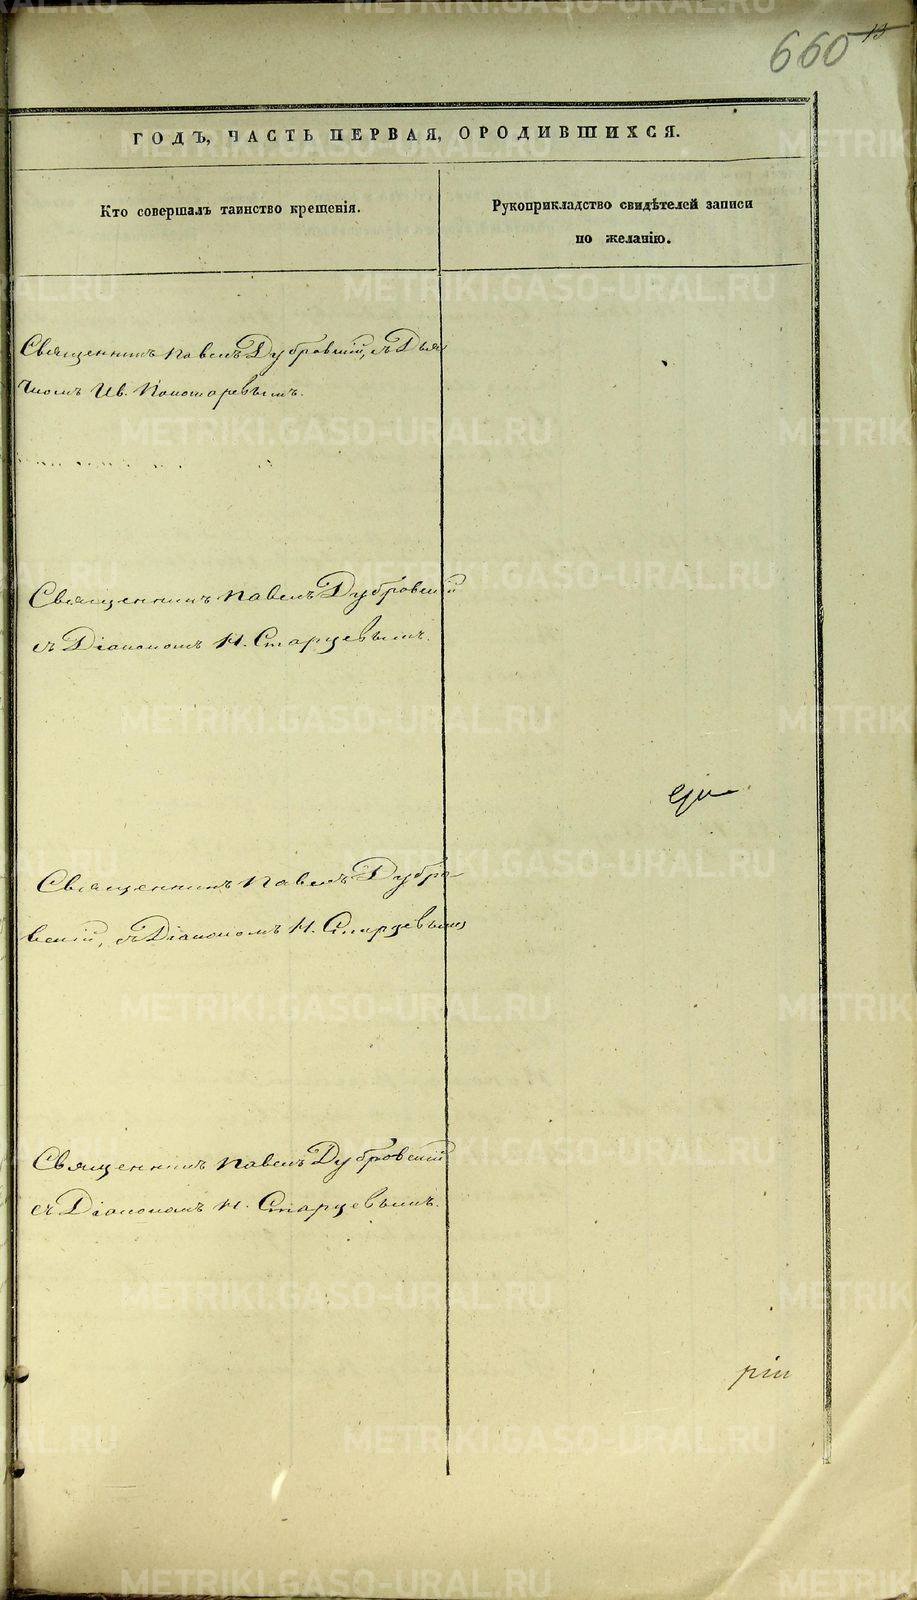 660 13
ГОДЪ, ЧАСТЬ ПЕРВАЯ, ОРОДИВШИХСЯ.
Кто совершалъ таинство крещенія.
Рукоприкладство свидѣтелей записи
по желанію.
Священникъ Павелъ Дубровскій, съ Дья
чкомъ Ив. Пономаревымъ.
Священникъ Павелъ Дубровскій
съ Діакономъ Н. Старцевымъ.
Священникъ Павелъ Дубро-
вскій, съ Діакономъ Н. Старцевымъ
Священникъ Павелъ Дубровскій
съ Діакономъ Н. Старцевымъ.
рій
METRIKI.GASO-URAL.RU